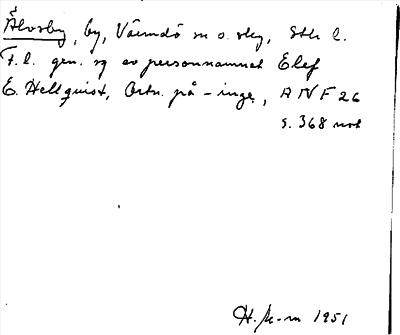 Älvsby, by, Värmdö sn o. skg, Sthlm l.
F.l. gen. sg av personnamnet Elef
E. Hellquist, Ortn. på -inge, ANF 26
s. 368 not
1951